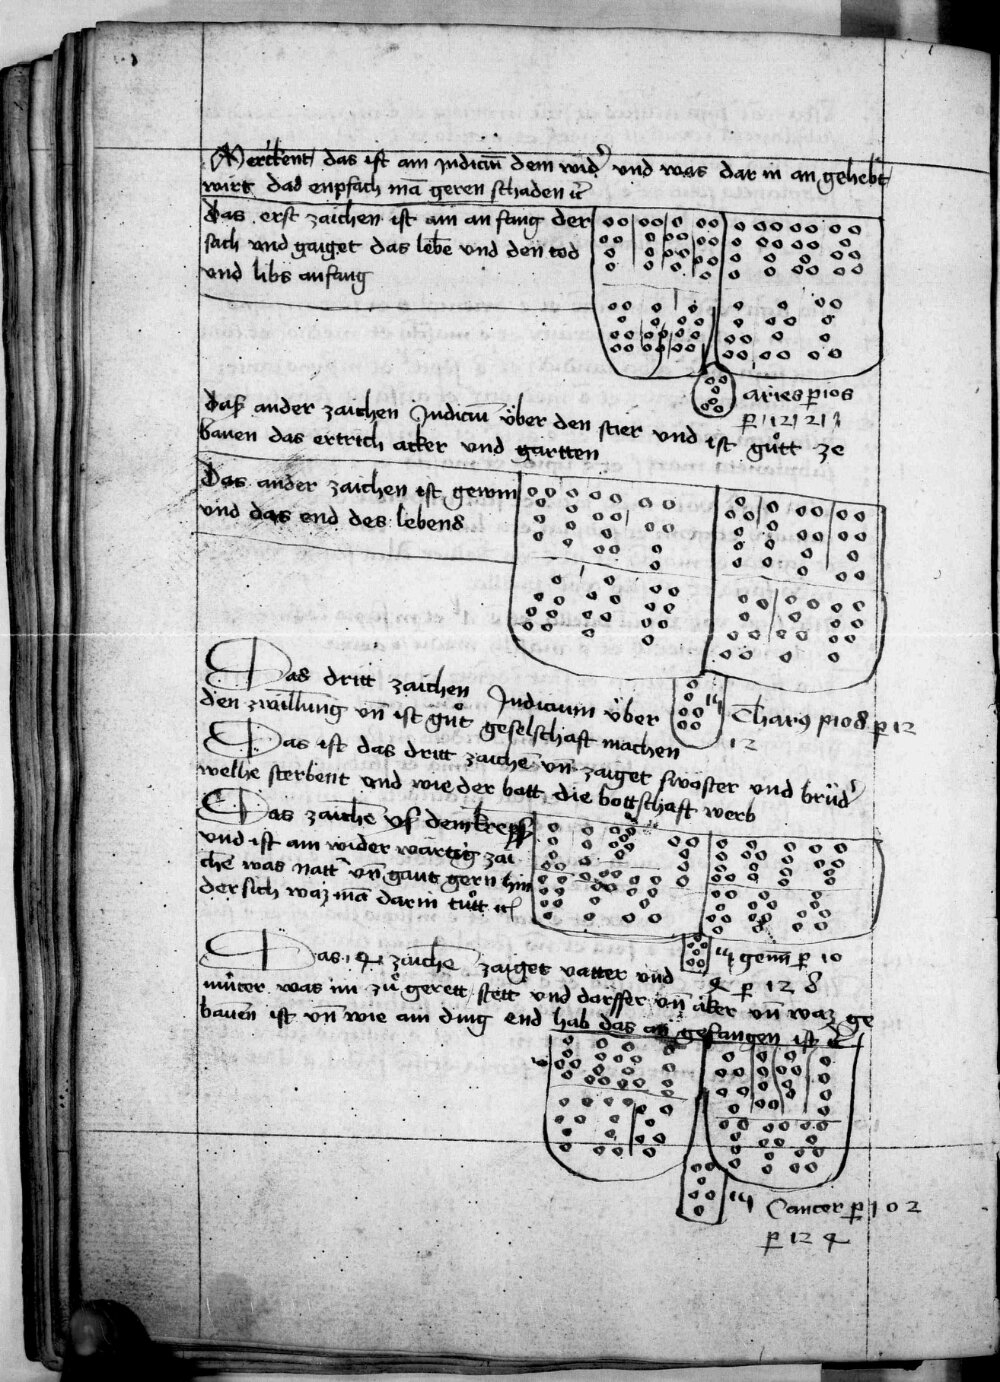 Merckent das ist am Judiciū dem wid' und was dar in an gehebt
wirt das enpfach mā geren schaden
das erst zaichen ist ain an fang der
sach vnd zaiget das lebē vnd den tod
vnd libs anfang
aries p 108
p 121 21
das ander zaichen Judiciū über den stier vnd ist gůtt ze
bauen das ertrich acker vnd gartten
Das ander zaichen ist gewin
vnd das end des lebens
Das dritt zaichen Judicium über
den zwilling vn̄ ist gůt geselschaft machen
p 108 p 12
12
Das ist das dritt zaichē vn̄ zaiget swöster vnd brüd'
welhe sterbent vnd wie der bott die bottschaft werb
Das zaichē vf dem krepß
vnd ist ain wider wärtig zai
chē was natt vn̄ gaut gern hin
der sich waz mā darin tůtt
4 gemi p 10
4 p 12 8
Das 4 zaichē zaiget vatter vnd
můter was im zů gerett stett vnd dörffer vn̄ äker vn̄ waz ge
bauen ist vn̄ wie ain ding end hab das an gefangen ist
4 Cancer p 102
p 12 4